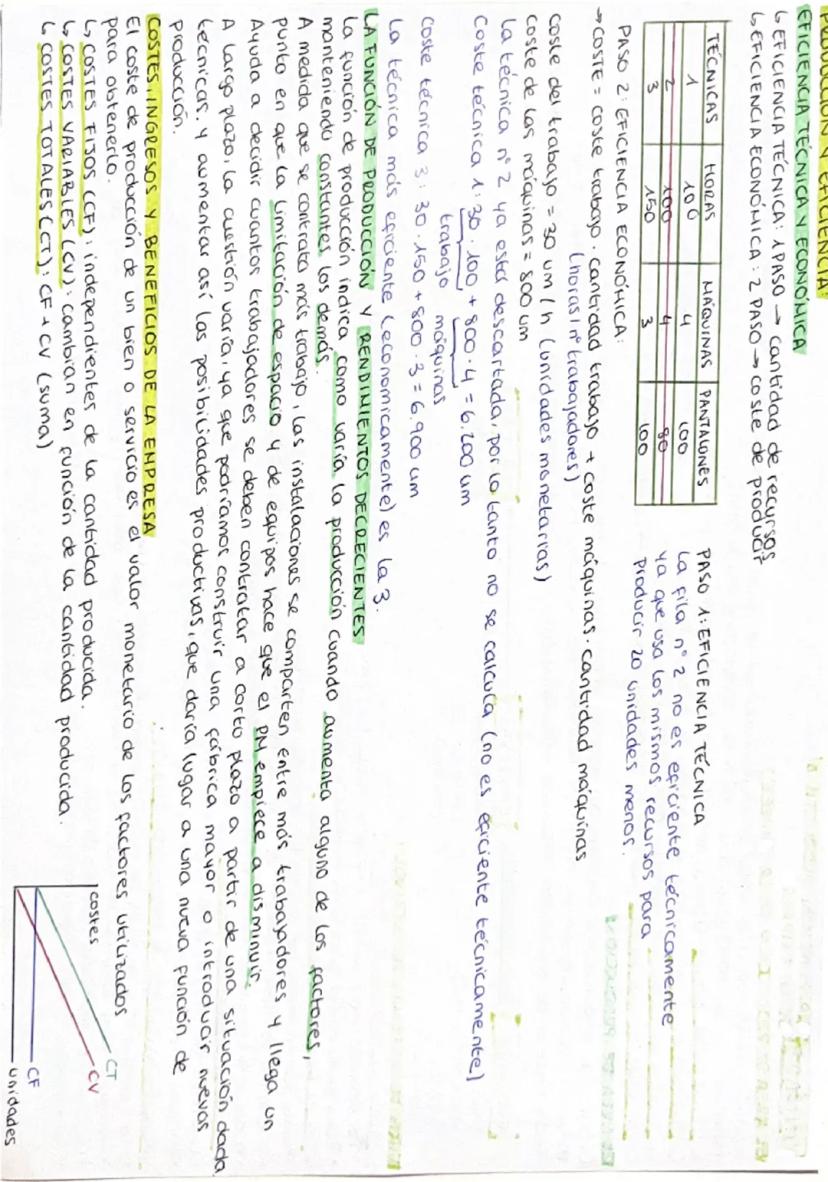 PRODUCCIÓN Y EFICIENCIA:
EFICIENCIA TÉCNICA Y ECONÓMICA
↳ EFICIENCIA TÉCNICA: 1 PASO → cantidad de recursos
↳ EFICIENCIA ECONÓMICA: 2 PASO → coste de producir
TÉCNICAS HORAS MÁQUINAS PANTALONES
1 100 4 100
2 100 4 80
3 150 3 100
PASO 1: EFICIENCIA TÉCNICA
La fila nº 2 no es eficiente técnicamente
ya que usa los mismos recursos para
producir 20 unidades menos.
PASO 2: EFICIENCIA ECONÓMICA:
→ COSTE = coste trabajo · cantidad trabajo + coste máquinas · cantidad máquinas
(horas/nº trabajadores)
coste del trabajo = 30 um/h (unidades monetarias)
coste de las máquinas = 800 um
La técnica nº 2 ya está descartada, por lo tanto no se calcula (no es eficiente técnicamente)
Coste técnica 1: 30 · 100 + 800 · 4 = 6.200 um
trabajo máquinas
Coste técnica 3: 30 · 150 + 800 · 3 = 6.900 um
La técnica más eficiente (económicamente) es la 3.
LA FUNCIÓN DE PRODUCCIÓN Y RENDIMIENTOS DECRECIENTES
La función de producción indica como varía la producción cuando aumenta alguno de los factores,
manteniendo constantes los demás.
A medida que se contrata más trabajo, las instalaciones se comparten entre más trabajadores y llega un
punto en que la limitación de espacio y de equipos hace que el PM empiece a disminuir.
Ayuda a decidir cuantos trabajadores se deben contratar a corto plazo a partir de una situación dada
A largo plazo, la cuestión varía, ya que podríamos construir una fábrica mayor o introducir nuevas
técnicas. Y aumentar así las posibilidades productivas, que daría lugar a una nueva función de
producción.
COSTES, INGRESOS Y BENEFICIOS DE LA EMPRESA
El coste de producción de un bien o servicio es el valor monetario de los factores utilizados
para obtenerlo.
↳ COSTES FIJOS (CF): independientes de la cantidad producida.
↳ COSTES VARIABLES (CV): cambian en función de la cantidad producida.
↳ COSTES TOTALES (CT): CF + CV (suma)
costes
CT
CV
CF
unidades